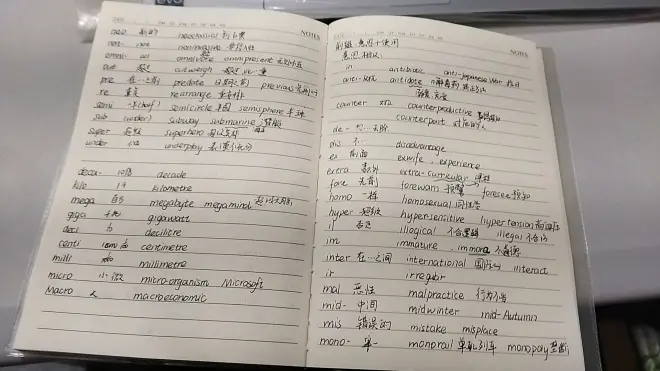 NOTES
neo 新的 neoclassics 新古典
non- not noninvasive 非侵入性
omni- all omnivore omnipresent 无所不在
out 超过 outweigh 超过…重
pre 在…之前 predate previous
re 重复 rearrange 重新排
semi 半(half) semicircle 半圆 semisphere 半球
sub (under) subway submarine 潜艇
super 超级 superhero 超级英雄
under 不足 underplay
deca- 10倍 decade
kilo 1千 kilometre
mega 百万 megabyte megamind
giga 十亿 gigawatt
deci decilitre
centi centimetre
milli millimetre
micro 小,微 micro-organism Microsoft
Macro 大 macroeconomic
NOTES
前缀 意思+使用
意思相反:
in antibiotic anti-Japanese War 抗日
anti- antidote
counter 对应 counterproductive
counterpart 对应的人
de-
dis 不 disadvantage
ex 前面 exwife, experience
extra 额外 extra-curricular 课程
fore 先前 forewarn 预警 foresee 预知
homo 一样 homosexual 同性恋
hyper 超级 hypersensitive hypertension 高血压
il 否定 illogical 不合逻辑 illegal 不合法
im immature immoral 不道德
inter 在…之间 international 国际 interact
ir irregular
mal 恶性 malpractice 行为不当
mid- 中间 midwinter mid-Autumn
mis 错误的 mistake misplace
mono- 单一 monorail 单轨列车 monopoly 垄断